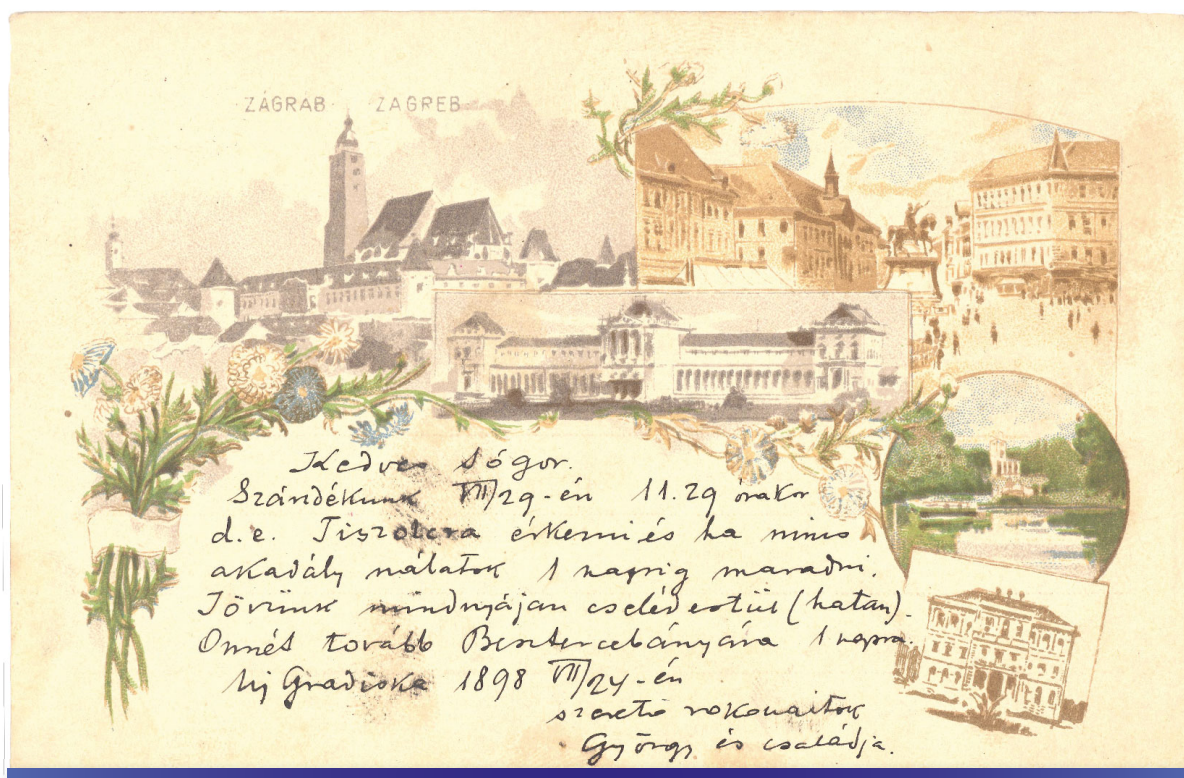 ZÁGRAB ZAGREB
Kedves Sógor.
Szándékunk VII/29-én 11.29 órakor
d.e. Tiszolcra érkezni és ha nincs
akadály nálatok 1 napig maradni.
Jövünk mindnyájan cselédestül (hatan).
Onnét tovább Besztercebányára 1 napra.
Uj Gradiska 1898 VII/24-én
szerető rokonaitok
György és családja.